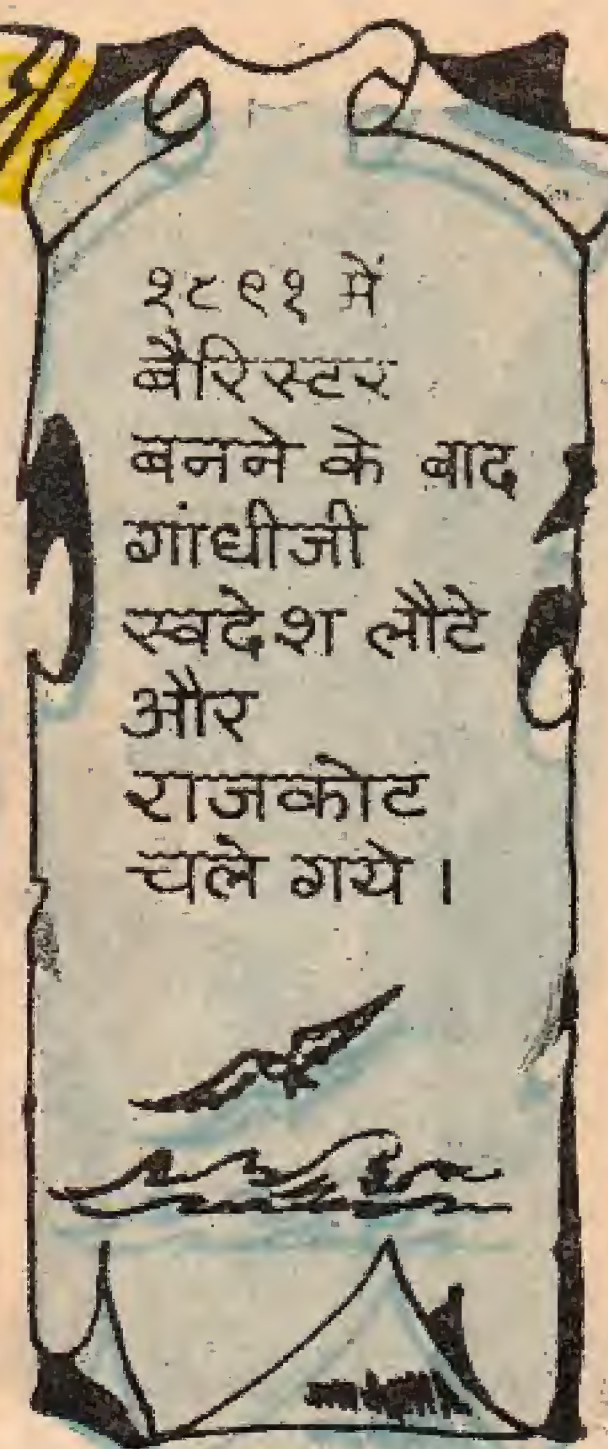 १८९१ में
बैरिस्टर
बनने के बाद
गांधीजी
स्वदेश लौटे
और
राजकोट
चले गये।